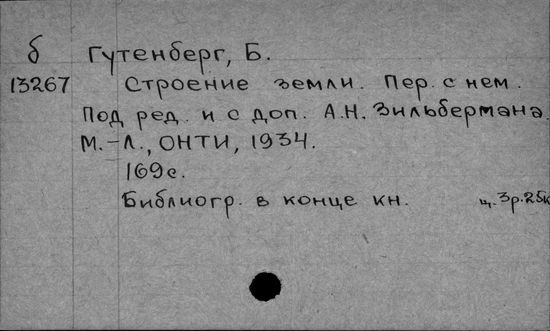 б Гутенберг, Б.
13267 Строение земли. Пер. с нем.
Под ред. и с доп. А.Н. Зильбермана.
М.-Л., ОНТИ, 1934.
169с.
Библиогр. в конце кн. ц. 3р.25к